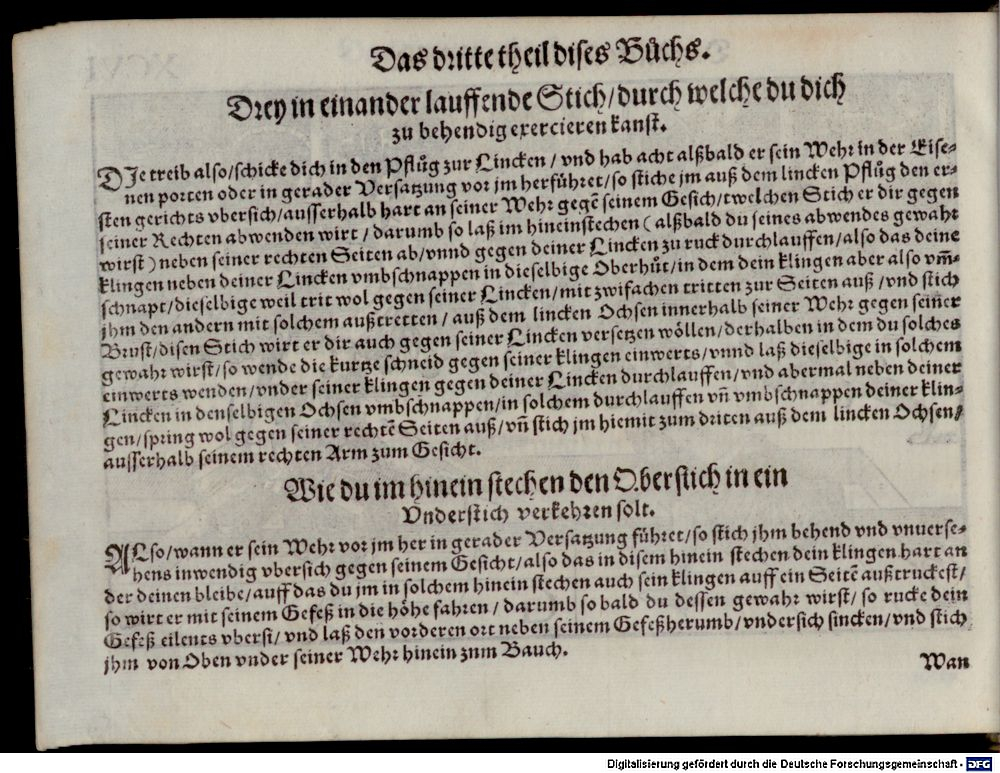 Das dritte theil dises Bůchs.
Drey in einander lauffende Stich/durch welche du dich
zu behendig exercieren kanst.
DJe treib also/schicke dich in den Pflůg zur Lincken / vnd hab acht alßbald er sein Wehr in der Eise-
nen porten oder in gerader Versatzung vor jm herfůhret/so stiche jm auß dem lincken Pflůg den er-
sten gerichts vbersich/ausserhalb hart an seiner Wehr gegẽ seinem Gesich/twelchen Stich er dir gegen
seiner Rechten abwenden wirt / darumb so laß im hineinstechen ( alßbald du seines abwendes gewahr
wirst ) neben seiner rechten Seiten ab/vnnd gegen deiner Lincken zu ruck durchlauffen/also das deine
klingen neben deiner Lincken vmbschnappen in dieselbige Oberhůt/in dem dein klingen aber also vm̃-
schnapt/dieselbige weil trit wol gegen seiner Lincken/mit zwifachen tritten zur Seiten auß /vnd stich
jhm den andern mit solchem außtretten / auß dem lincken Ochsen innerhalb seiner Wehr gegen seiner
Brust/disen Stich wirt er dir auch gegen seiner Lincken versetzen wöllen/derhalben in dem du solches
gewahr wirst/so wende die kurtze schneid gegen seiner klingen einwerts/vnnd laß dieselbige in solchem
einwerts wenden/vnder seiner klingen gegen deiner Lincken durchlauffen/vnd abermal neben deiner
Lincken in denselbigen Ochsen vmbschnappen/in solchem durchlauffen vñ vmbschnappen deiner klin-
gen/spring wol gegen seiner rechtẽ Seiten auß/vñ stich jm hiemit zum driten auß dem lincken Ochsen/
ausserhalb seinem rechten Arm zum Gesicht.
Wie du im hinein stechen den Oberstich in ein
Vnderstich verkehren solt.
ALso/wann er sein Wehr vor jm her in gerader Versatzung führet/so stich jhm behend vnd vnuerse-
hens inwendig vbersich gegen seinem Gesicht/also das in disem hinein stechen dein klingen hart an
der deinen bleibe/auff das du jm in solchem hinein stechen auch sein klingen auff ein Seitẽ außtruckest/
so wirt er mit seinem Gefeß in die höhe fahren / darumb so bald du dessen gewahr wirst/ so rucke dein
Gefeß eilents vbersi/vnd laß den vorderen ort neben seinem Gefeßherumb/vndersich sincken/vnd stich
jhm von Oben vnder seiner Wehr hinein znm Bauch.
Wan
Digitalisierung gefördert durch die Deutsche Forschungsgemeinschaft - DFG